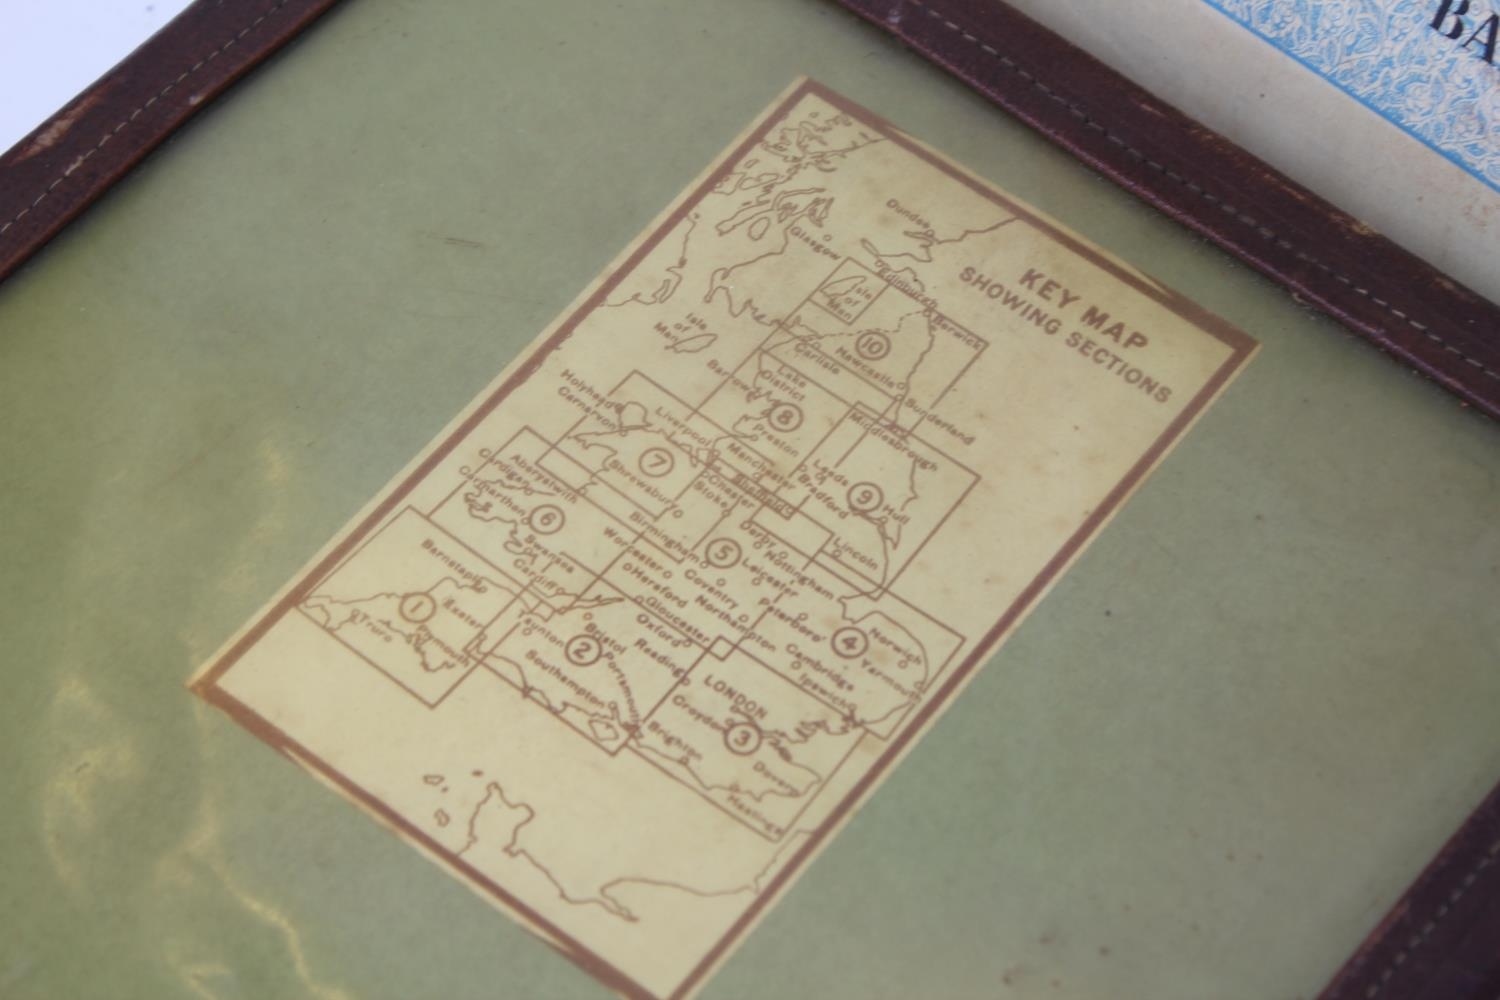 BA
KEY MAP
SHOWING SECTIONS
Dundee
Glasgow
Edinburgh
Isle
of
Man
Berwick
10
Isle
of
Man
Carlisle
Newcastle
Sunderland
Lake
District
Barrow
8
Preston
Middlesbrough
Holyhead
Carnarvon
Liverpool
7
Manchester
Leeds
Bradford
9
Hull
Chester
Sheffield
Stoke
Shrewsbury
Lincoln
Cardigan
Aberystwith
Carmarthen
6
Swansea
Cardiff
Birmingham
5
Derby
Nottingham
Leicester
Worcester
Hereford
Coventry
Northampton
Peterboro'
4
Norwich
Yarmouth
Gloucester
Oxford
Cambridge
Ipswich
Barnstaple
1
Exeter
Truro
Plymouth
Taunton
Bristol
2
Reading
Portsmouth
Southampton
LONDON
Croydon
3
Brighton
Dover
Hastings